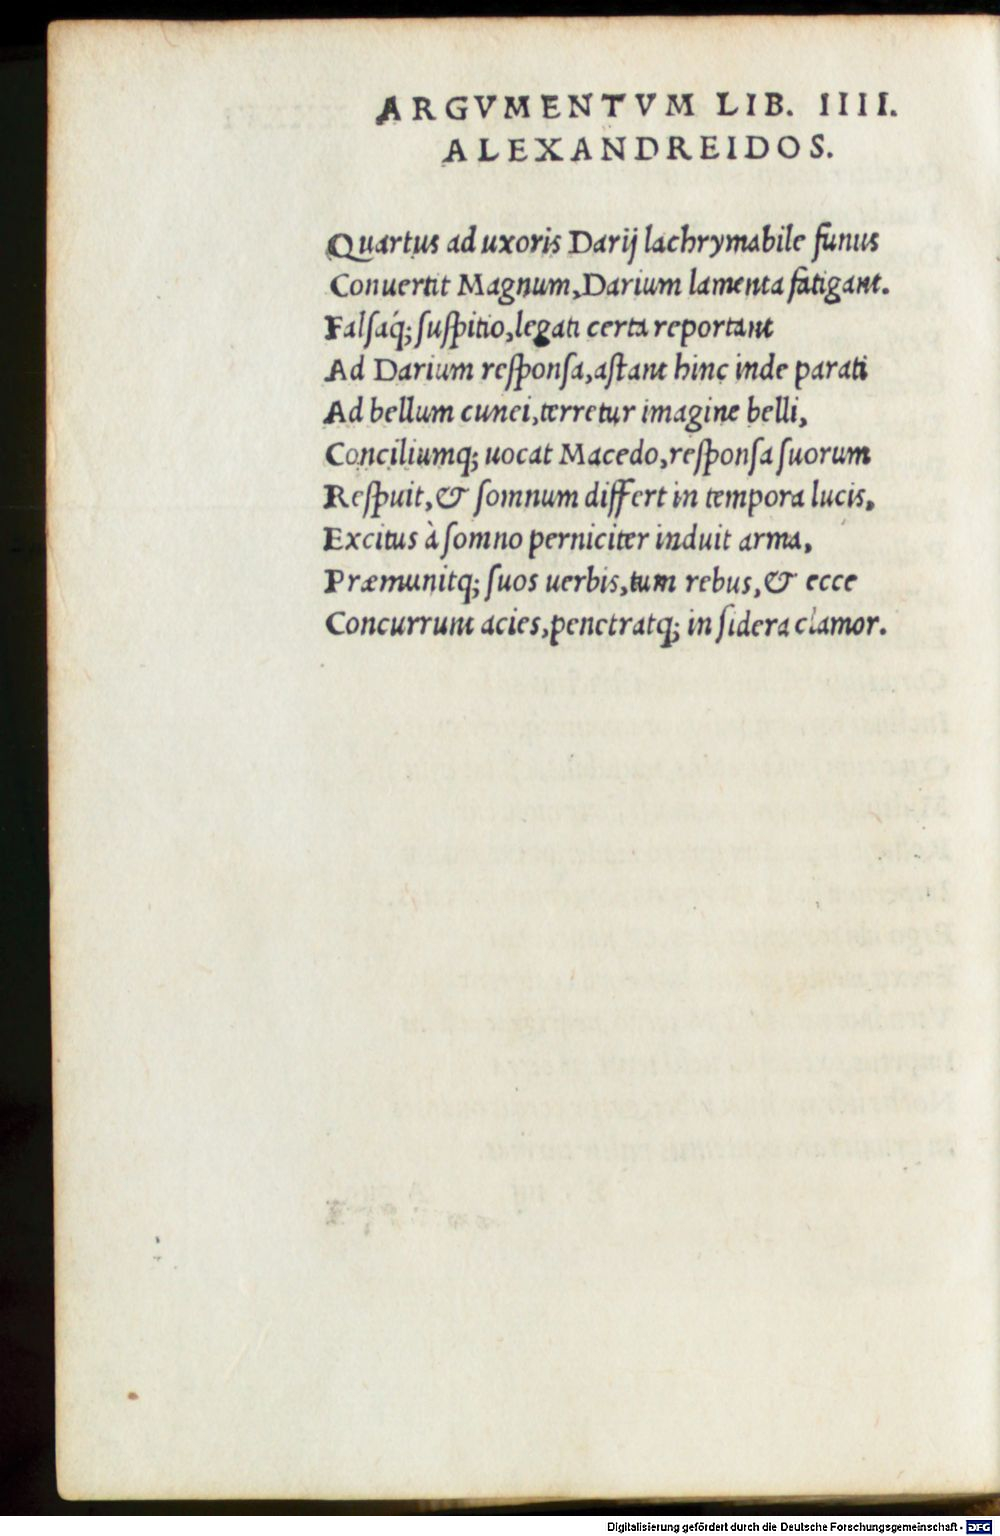 ARGVMENTVM LIB. IIII.
ALEXANDREIDOS.
Quartus ad uxoris Darij lachrymabile funus
Conuertit Magnum, Darium lamenta fatigant.
Falsaq́; suspitio, legati certa reportant
Ad Darium responsa, astant hinc inde parati
Ad bellum cunei, terretur imagine belli,
Conciliumq; uocat Macedo, responsa suorum
Respuit, & somnum differt in tempora lucis,
Excitus à somno perniciter induit arma,
Præmunitq; suos uerbis, tum rebus, & ecce
Concurrunt acies, penetratq; in sidera clamor.
Digitalisierung gefördert durch die Deutsche Forschungsgemeinschaft - DFG